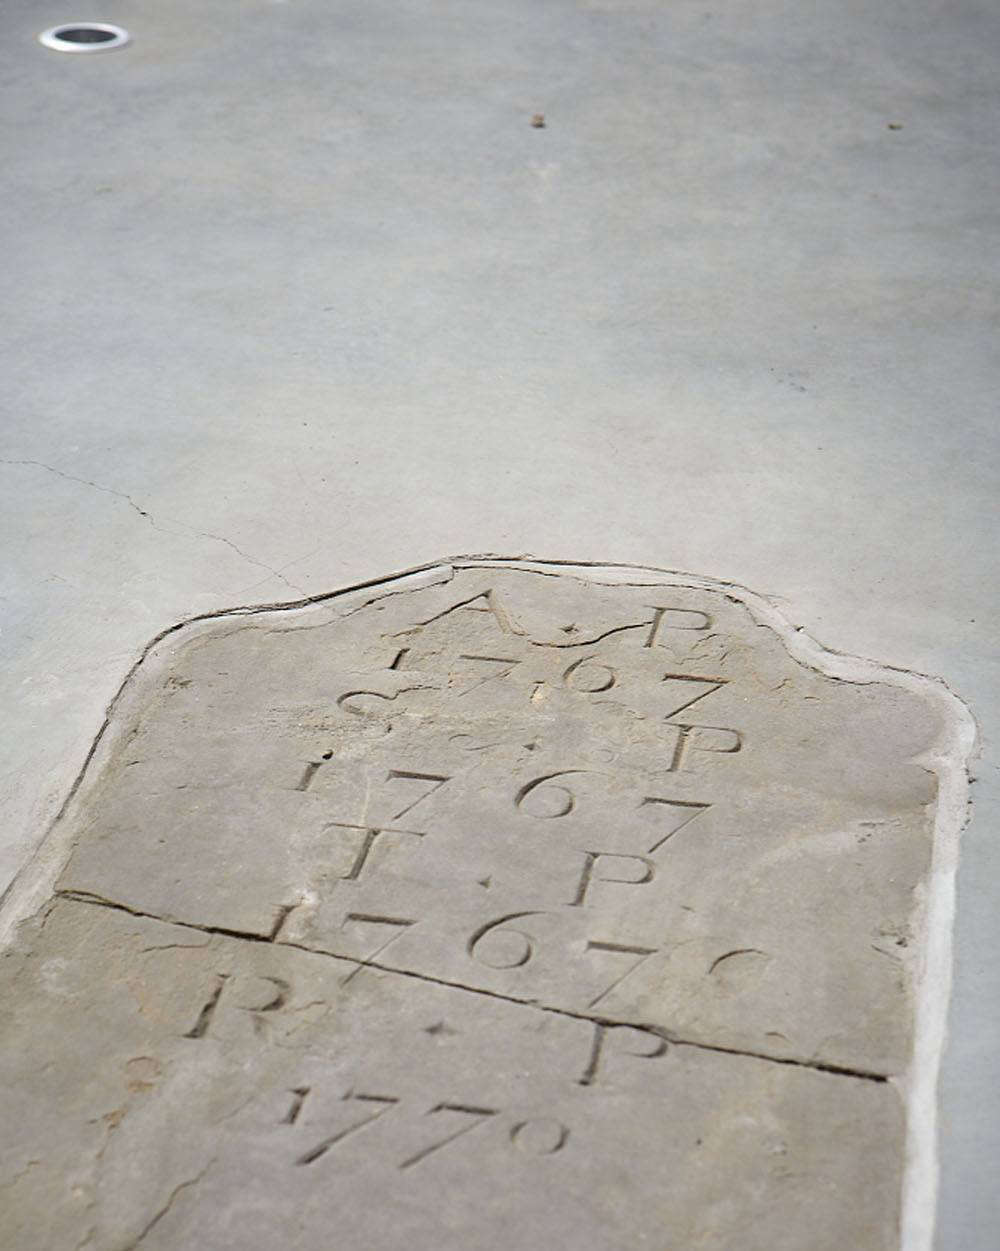 A · P
1767
P
1767
T · P
1767
R · P
1770